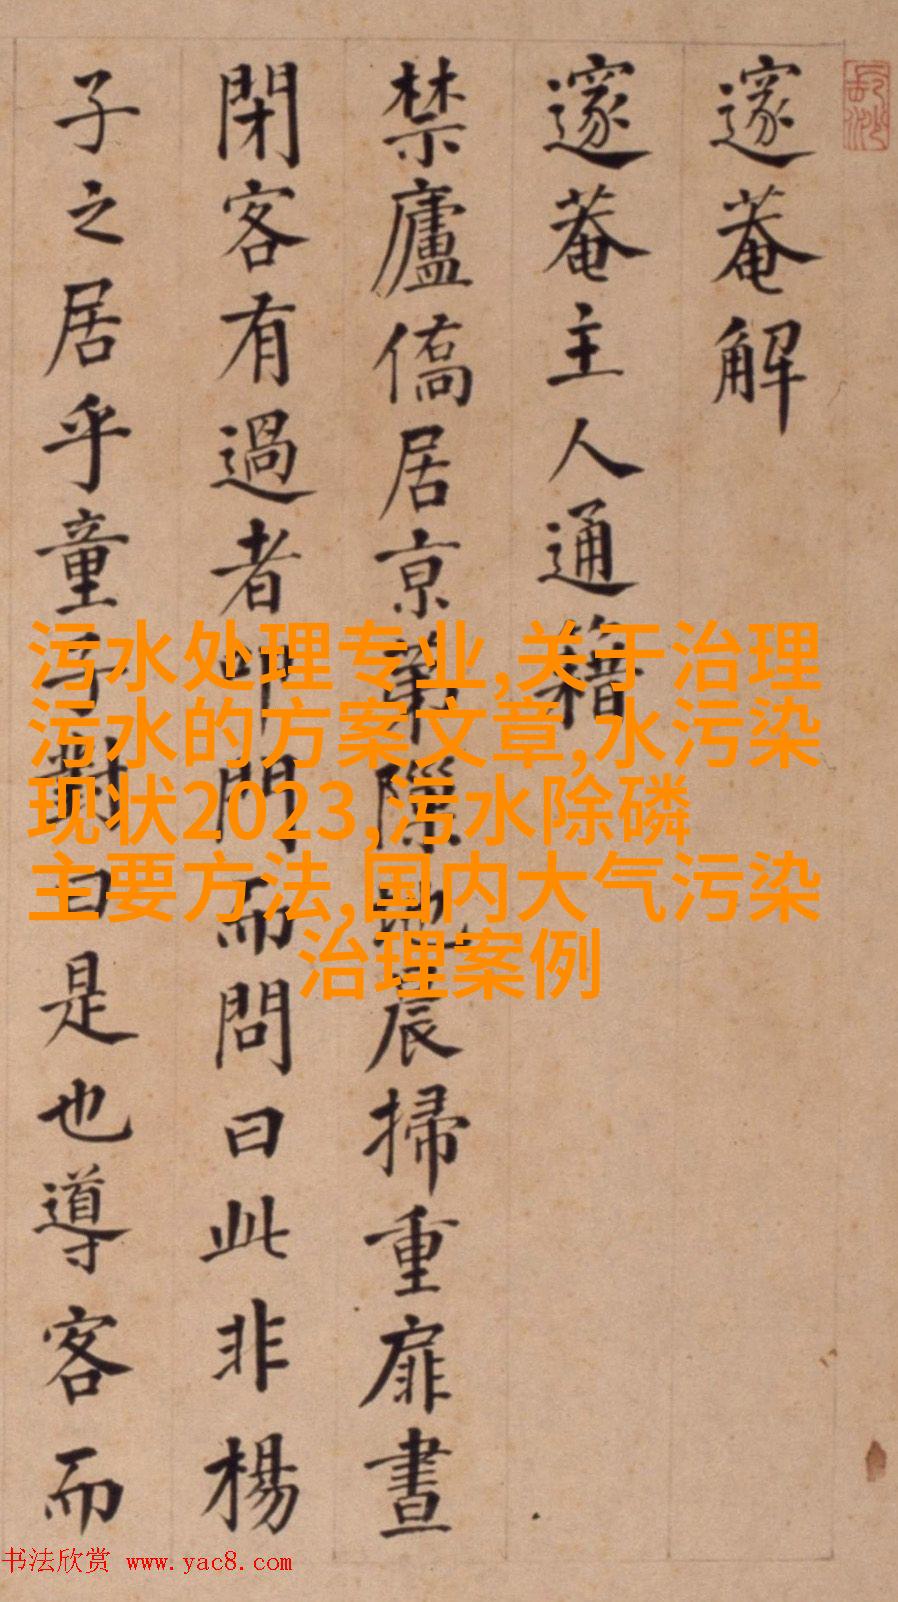 邃菴解
邃菴主人通籍
禁廬僑居京第隙地晨掃重扉晝
閉客有過者叩門而問曰此非楊
子之居乎童子對曰是也導客而
污水处理专业,关于治理
污水的方案文章,水污染
现状2023,污水除磷
主要方法,国内大气污染
治理案例
书法欣赏 www.yac8.com